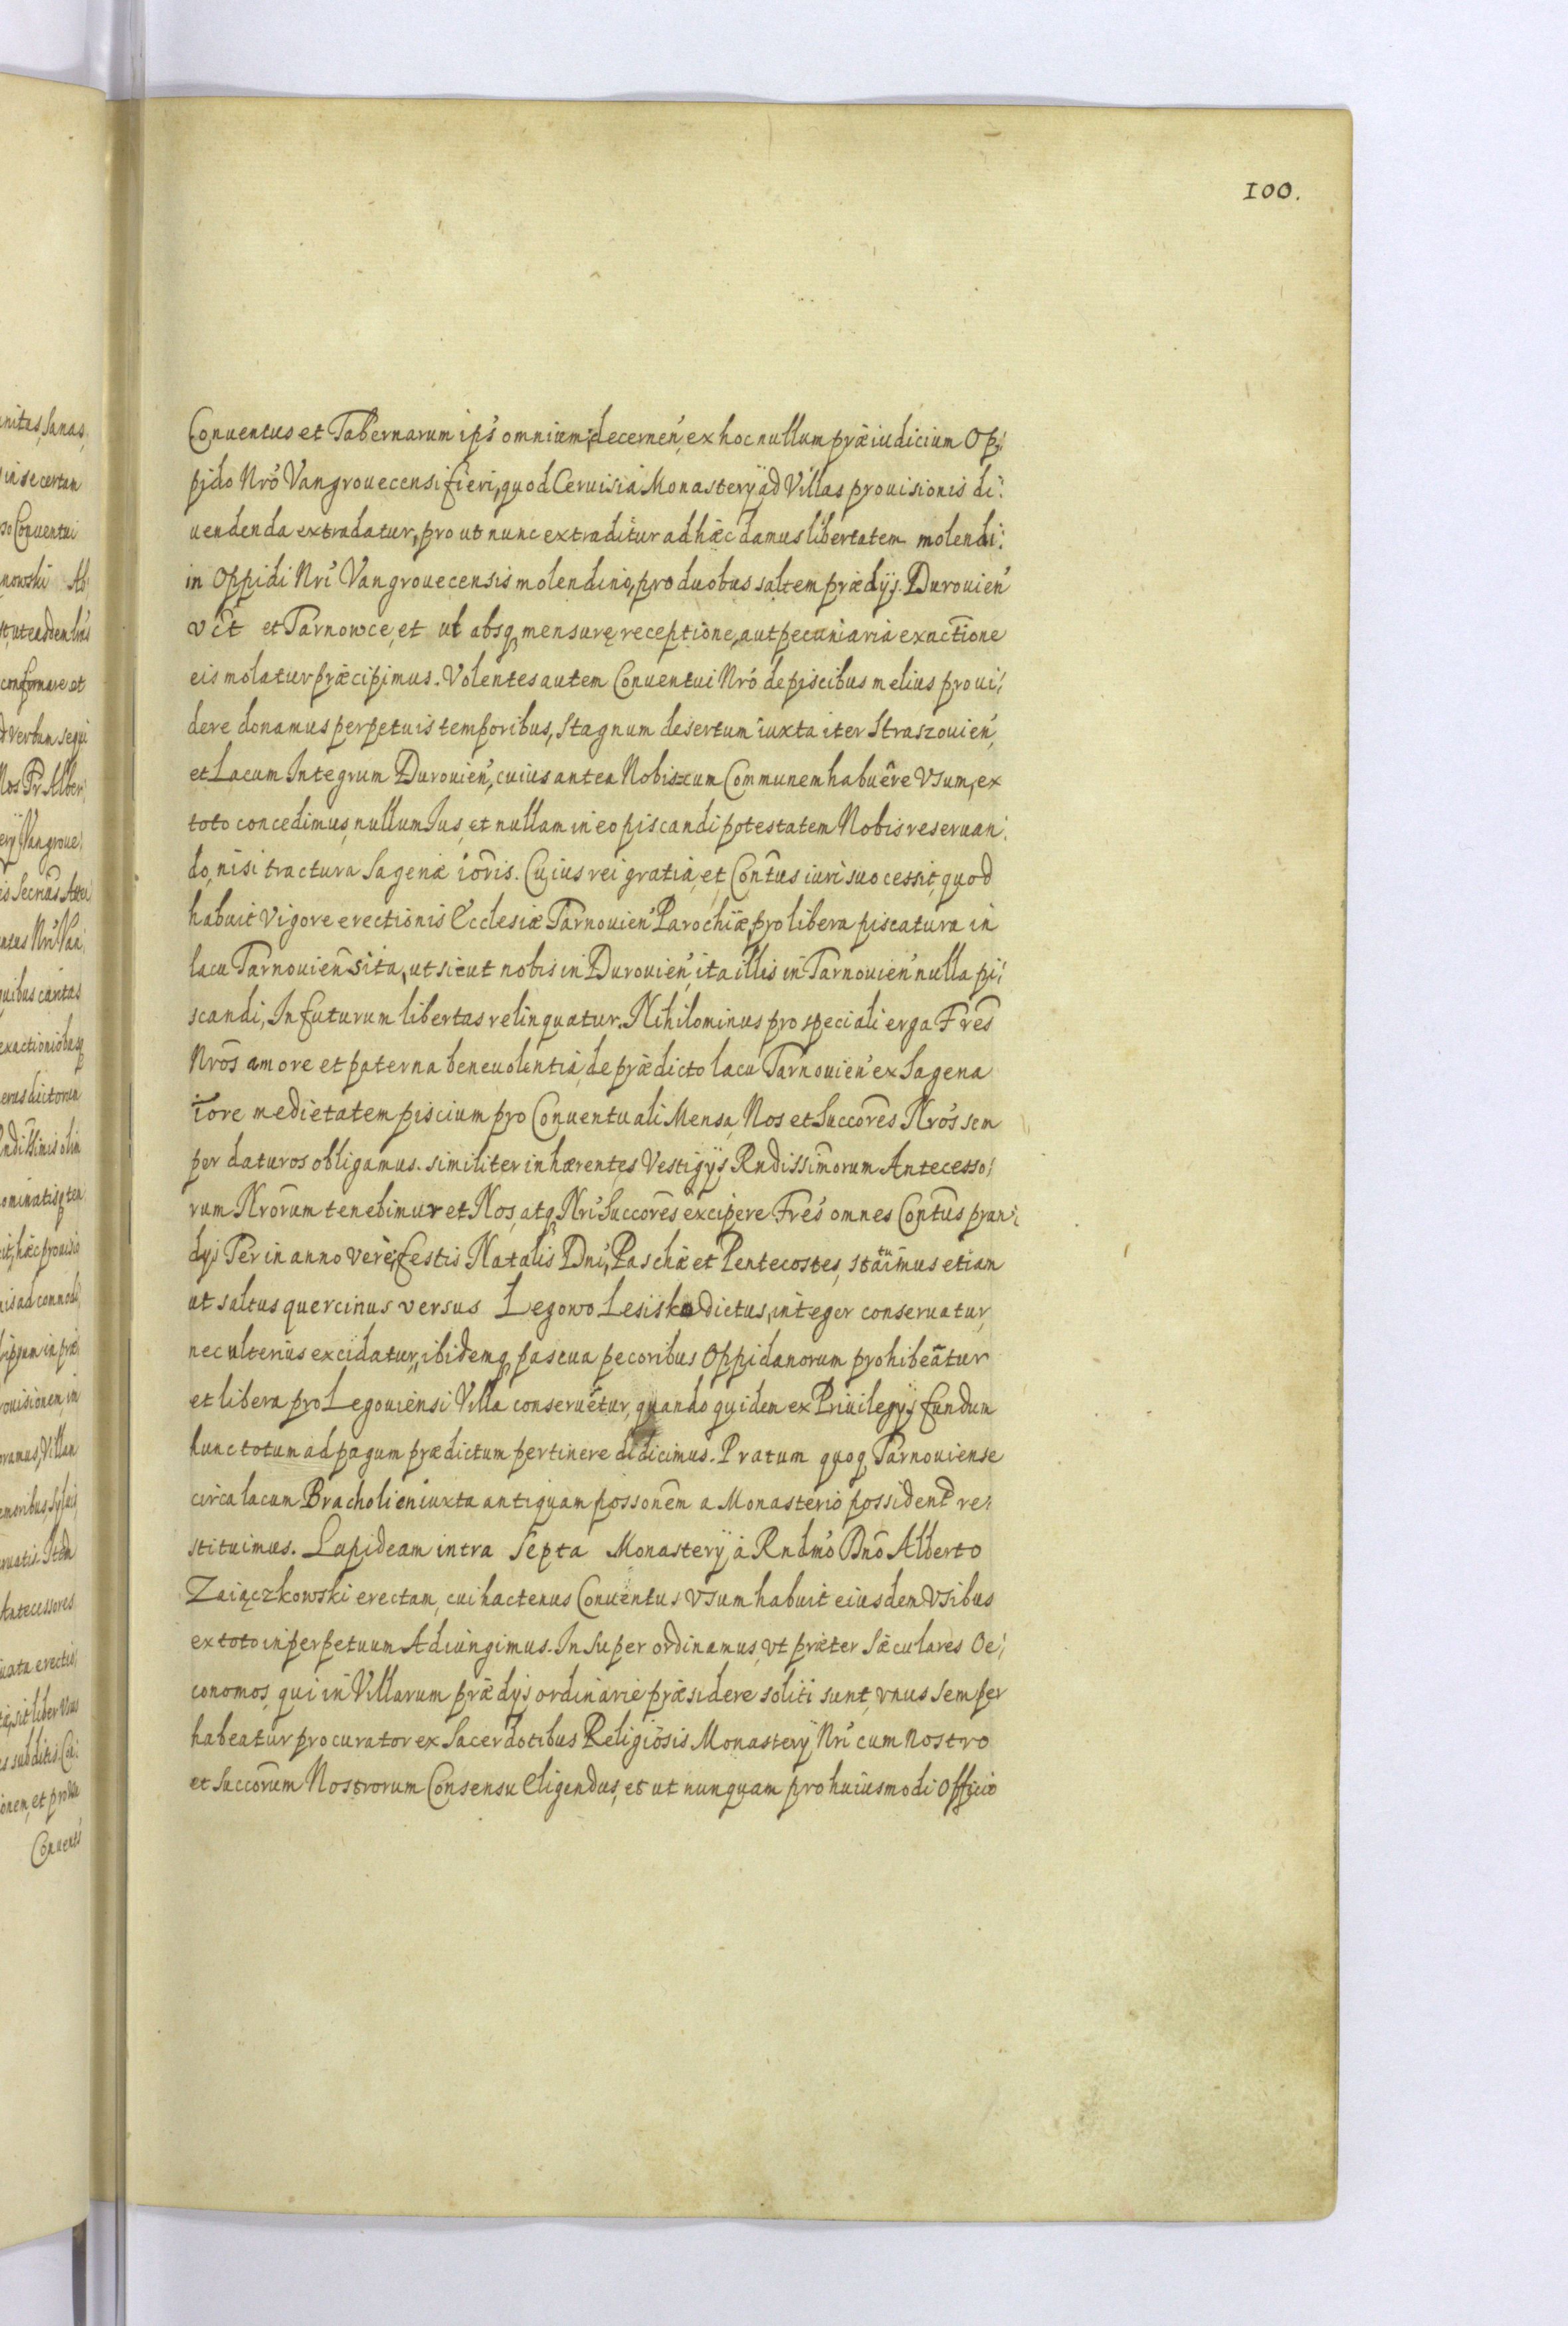 100.
Conuentus et Tabernarum ips' omnium; decernen', ex hoc nullum præiudicium Op:
pido Nrõ Vangrouecensi fieri, quod Ceruisia Monasterÿ ad Villas prouisionis di:
uendenda extradatur, pro ut nunc extraditur ad hæc damus libertatem molendi:
in Oppidi Nri' Vangrouecensis molendino, pro duobus saltem prædijs. Durouien'
vct et Tarnowce, et ut absq mensurę receptione, aut pecuniaria exactione
eis molatur præcipimus. Volentes autem Conuentui Nró de piscibus melius proui:
dere donamus perpetuis temporibus, Stagnum desertum iuxta iter Straszouien',
et Lacum Integrum Durouien', cuius antea Nobiscum Communem habuêre Vsum, ex
toto concedimus, nullum Ius, et nullam in eo piscandi potestatem Nobis reseruan:
do, nisi tractura Sagenæ ioris. Cuius rei gratia, et Contus iuri suo cessit, quod
habuit Vigore erectionis Ecclesiæ Tarnouien' Parochiæ, pro libera piscatura in
lacu Tarnouien sita, ut sicut nobis in Durouien', ita illis in Tarnouien' nulla pi:
scandi, In futurum libertas relinquatur. Nihilominus pro speciali erga Fres
Nros amore et paterna beneuolentia, de prædicto lacu Tarnouien' ex Sagena
iore medietatem piscium pro Conuentuali Mensa, Nos et Succores Nrós sem
per daturos obligamus. similiter inhærentes Vestigijs Rndissimorum Antecesso:
rum Nrorum tenebimur et Nos, atq Nri' Succores excipere Frés omnes Contus pran:
dijs Ter in anno verè, festis Natalis Dni', Paschæ et Pentecostes, statuimus etiam
ut saltus quercinus versus Legowo Lesisko dictus, integer conseruatur,
nec ulterius excidatur, ibidemq pascua pecoribus Oppidanorum prohibeatur
et libera pro Legouiensi Villa conseruetur, quando quidem ex Priuilegijs fundum
hunc totum ad pagum prædictum pertinere didicimus. Pratum quoq Tarnouiense
circa lacum Bracholien iuxta antiquam possonem a Monasterio possidend re:
stituimus. Lapideam intra Septa Monasterÿ à Rndmo' Dno Alberto
Zaiączkowski erectam, cui hactenus Conuentus Vsum habuit eiusdem Vsibus
ex toto in perpetuum Adiungimus. In super ordinamus, vt præter Sæculares Oe:
conomos, qui in Villarum prædijs ordinarie præsidere soliti sunt, vnus semper
habeatur procurator ex Sacerdotibus Religiosis Monasterÿ Nri' cum Nostro
et Succorum Nostrorum Consensu Eligendus, et ut nunquam pro huiusmodi Officio